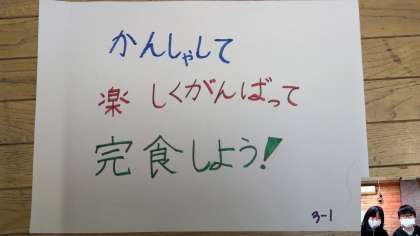 かんしゃして
楽しくがんばって
完食しよう!
3-1